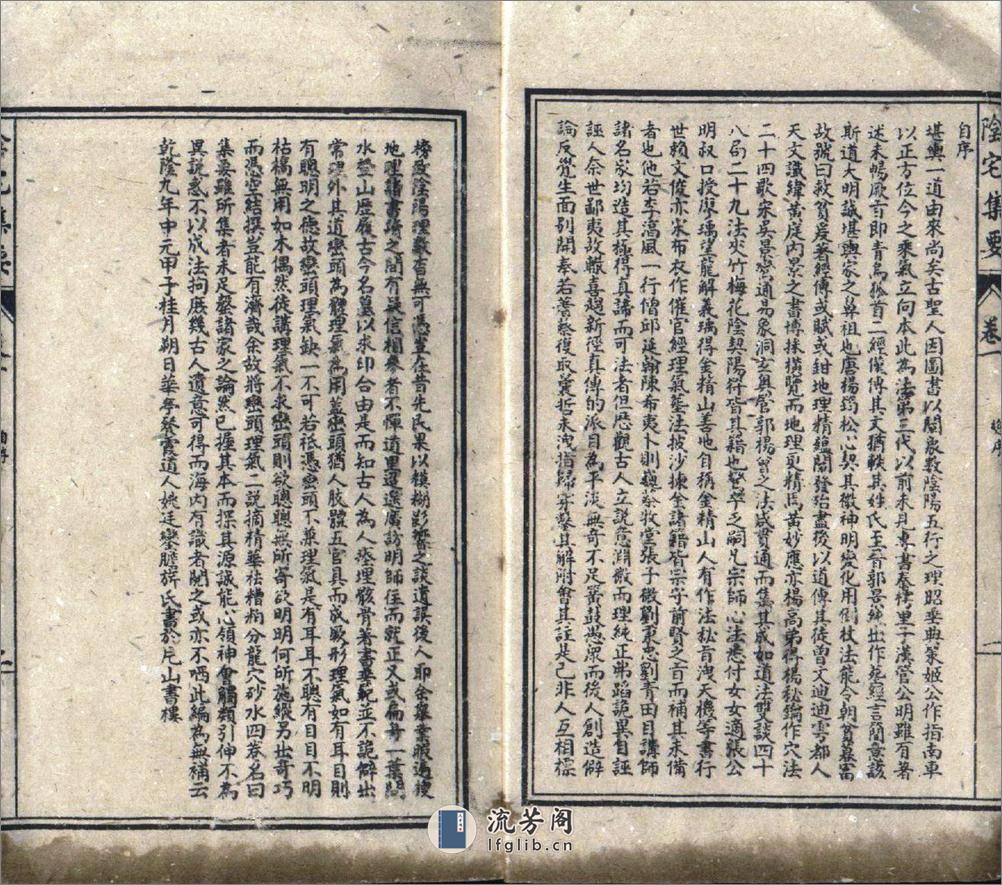 陰宅集要
卷一
自序
堪輿一道由來尚矣古聖人因圖書以闡象數陰陽五行之理昭垂典蒙姬公作指南車
以正方位今之乘氣立向本此為法第三代以前未見專書秦樗里子漢管公明雖有著
述未暢厥旨即青烏狐首二經僅傳其文猶軼其姓氏至晉郭景純出作葬經言簡意該
斯道大明誠堪輿家之鼻祖也唐楊筠松心契其微神明變化用倒杖法能令朝貧暮富
故號曰救貧爰著經傳或賦或鉗地理精蘊闡發殆盡後以道傳其徒曾文迪迪雩都人
天文讖緯黃庭內景之書博採橫覽而地理更精馬黃妙應亦楊高弟得楊秘論作穴法
二十四歌宋吳景鸞通易象洞玄奧管郭楊曾之法咸貫通而集其成如道法雙談四十
八局二十九法夾竹梅花陰契陽符皆其籍也鸞卒之嗣凡宗師心法悉付女女適張公
明叔口授廖瑀望龍解義瑀得金精山善地自稱金精山人有作法秘旨洩天機等書行
世賴文俊亦宋布衣作催官經理氣葬法披沙揀金諸籍皆宗乎前賢之旨而補其未備
者也他若李淳風一行僧邱延翰陳希夷卜則巍蔡牧堂張子微劉秉忠劉青田目講師
諸名家均造其極得真諦而可法者但歷觀古人立說意淵微而理純正弗蹈詭異自誣
誣人奈世鄙夷故轍喜趨新徑真傳的派目為平淡無奇不足簧鼓愚眾而後人創造僻
論反覺生面別開奉若蓍蔡復取曩哲未洩指歸穿鑿其解附會其註是己非人互相標
榜致陰陽理數杳無可憑豈在昔先民果以模糊影響之談遺誤後人耶余舉業暇過搜
地理諸書疏之間有疑信相參者不憚道里遥遠廣訪明師往而就正又或扁舟一葉問
水登山歷履古今名墓以求印合由是而知古人為人瘞埋骸骨著書垂範並不詭僻出
常理外其道巒頭為體理氣為用蓋巒頭猶人肢體五官具而成厥形理氣如有耳目則
有聰明之德故巒頭理氣缺一不可若祗憑巒頭不兼理氣是有耳耳不聰有目目不明
枯槁無用如木偶然徒講理氣不求巒頭則欲聰聰無所寄欲明明何所施縱另出奇巧
而憑空結撰豈能有濟哉余故將巒頭理氣二說摘精華祛糟粕分龍穴砂水四卷名曰
集要雖所集者未足罄諸家之論然已握其本而探其源誠能心領神會觸類引伸不為
異說惑不以成法拘庶幾古人遺意可得而海內有識者閱之或亦不哂此編為無補云
乾隆九年中元甲子桂月朔日華亭餐霞道人姚廷鑾瞻旂氏書於片山書樓
流芳阁
lfglib.cn